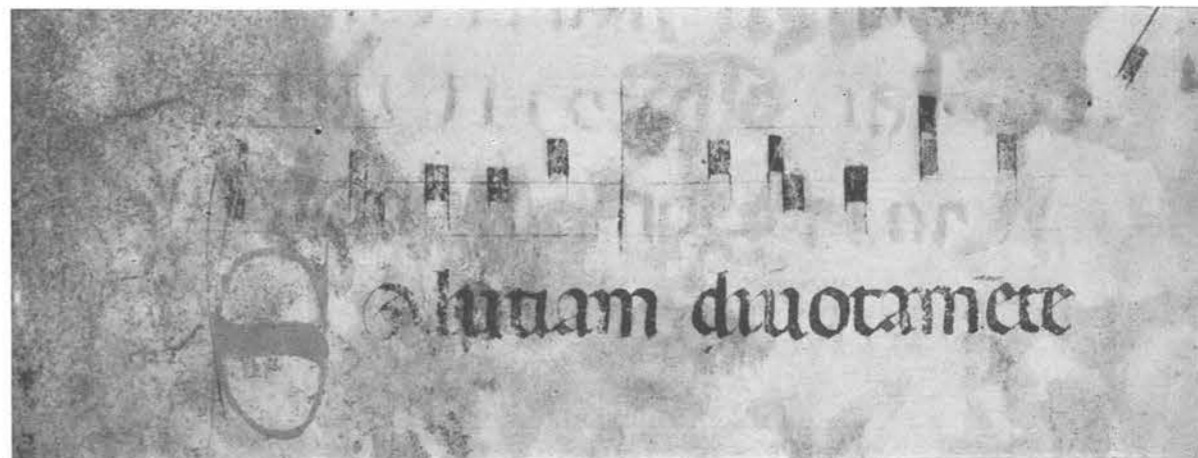 SAlutiam diuotamēte